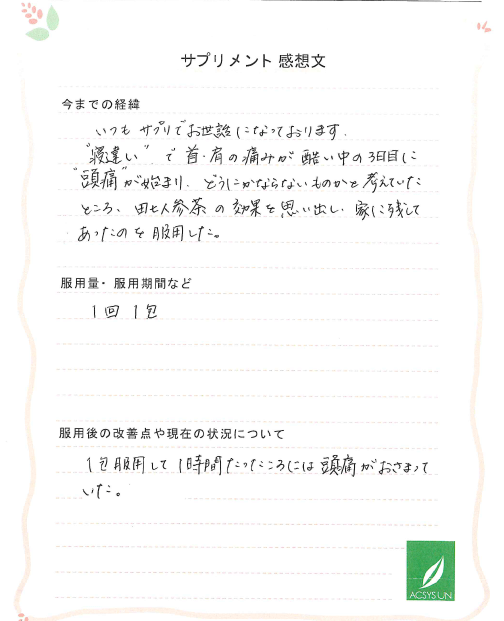 サプリメント 感想文
今までの経緯
いつも サプリでお世話になっております.
"寝違い" で 首・肩の痛みが 酷い中の3日目に
"頭痛"が始まり、どうにかならないものかと考えていた
ところ、田七人参茶 の 効果を 思い出し、家に残して
あったのを 服用した。
服用量・服用期間など
1回 1包
服用後の改善点や現在の状況について
1包服用して 1時間たったころには 頭痛がおさまって
いた。
ACSYSUN